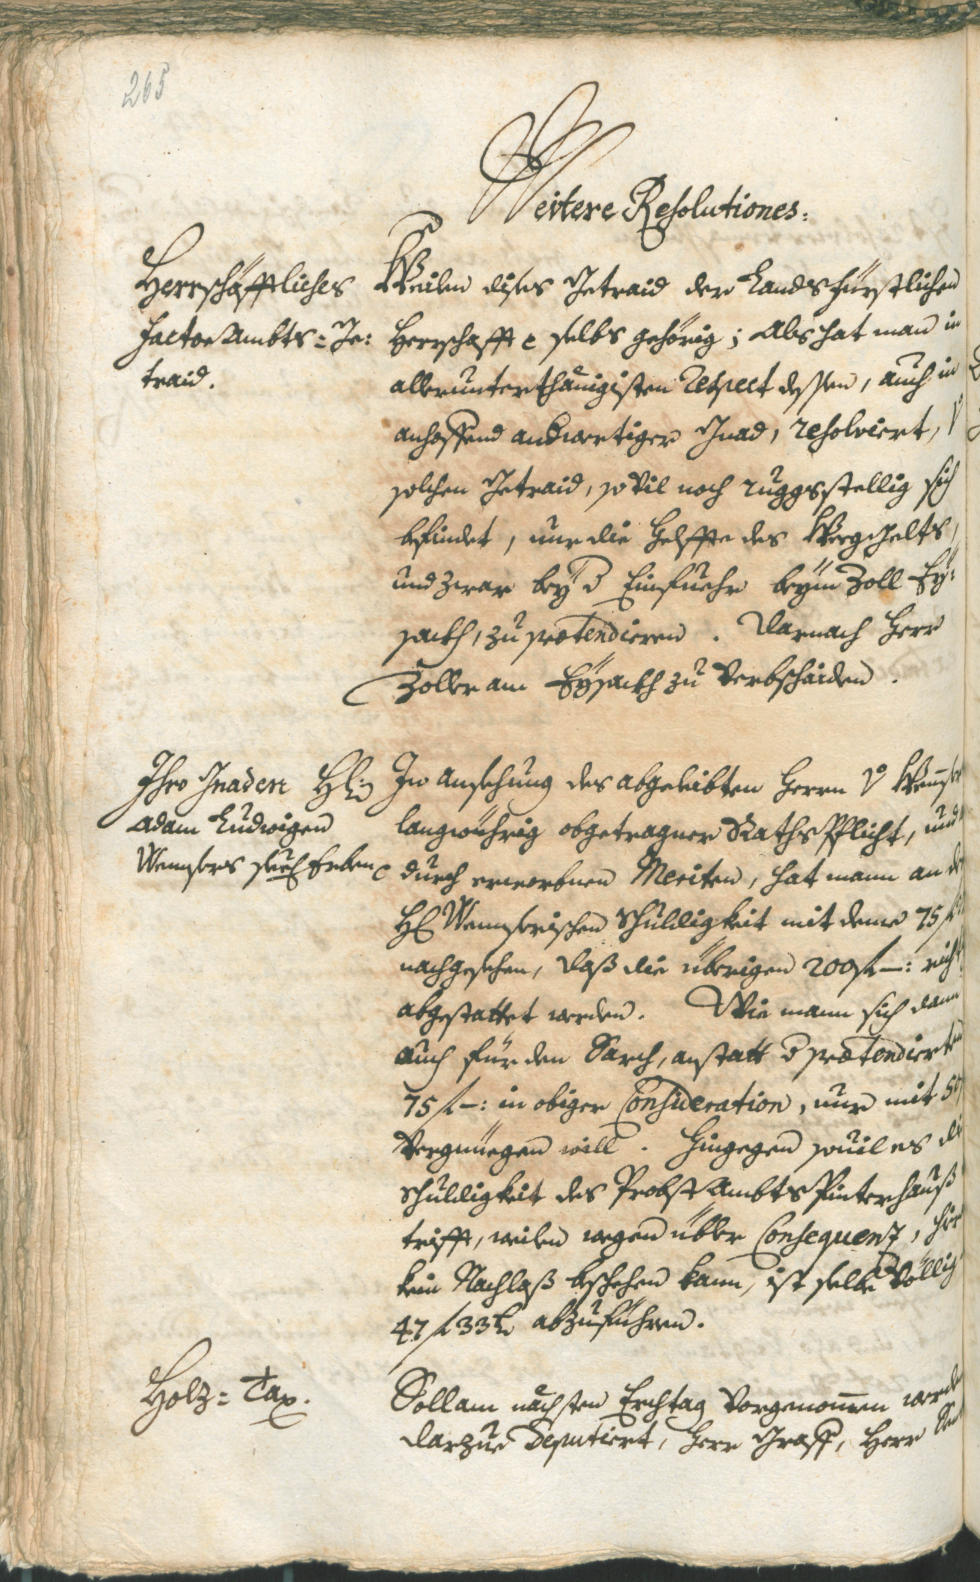 265
Weitere Resolutiones:
Herrschäfftliches
Factor Ambts=Ge:
traid.
Weilen dises Getraid der Landsfürstlichen
Herrschafft selbs gehörig; Als hat man in
allerunterthänigisten Respect dessen, auch in
anhoffend andwertiger Gnad, resolviert,
solchen Getraid, so vil noch ruggstellig sich
befindet, nur die Helffte des Weggelts,
und zwar bey d Einfuehr beym Zoll Ey:
sackh, zu praetendieren. Darnach Herr
Zoller am Eysackh zu verbschaiden.
Ihro Gnaden
Adam Ludwigen
Erben
In ansehung des abgeleibten Herrn v
langwührig obgetragner Raths Pflicht, und
durch erworbnen Meriten, hat mann an der
Schuldigkeit mit deme 75 f
nachgesehen, daß die übrigen 200 f —:
abgestattet werden. Wie mann sich dann
auch für den Sarch, anstatt d praetendierten
75 f —: in obiger Consideration, nur mit 50
vergnüegen will. Hingegen souil es die
Schuldigkeit des Probst Ambts Pinterhauß
trifft, weilen wegen übler Consequenz, hier
kein Nachlaß beschehen kann, ist selbe völlig
47 f 33 k abzuführen.
Holz=Tax.
Soll am nächsten Erchtag vorgenommen werden
darzue Deputiert, Herr Graff, Herr